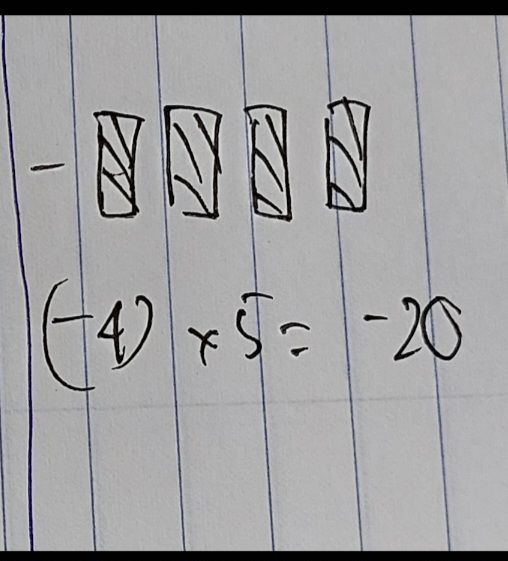 -
(-4) × 5 = -20